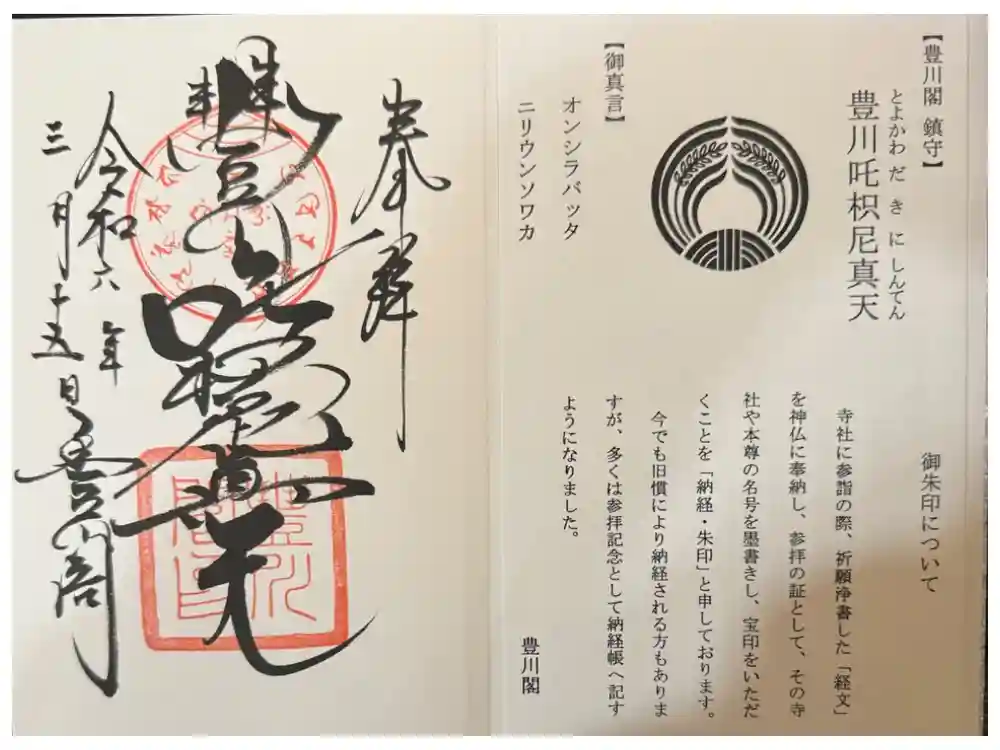 【豊川閣 鎮守】
とよかわ だ き に しんてん
豊川吒枳尼真天
【御真言】
オンシラバッタ
ニリウンソワカ
御朱印について
寺社に参詣の際、祈願浄書した「経文」
を神仏に奉納し、参拝の証として、その寺
社や本尊の名号を墨書きし、宝印をいただ
くことを「納経・朱印」と申しております。
今でも旧慣により納経される方もありま
すが、多くは参拝記念として納経帳へ記す
ようになりました。
豊川閣
奉拝
豊川吒枳尼真天
令和六年
三月十五日
豊川閣